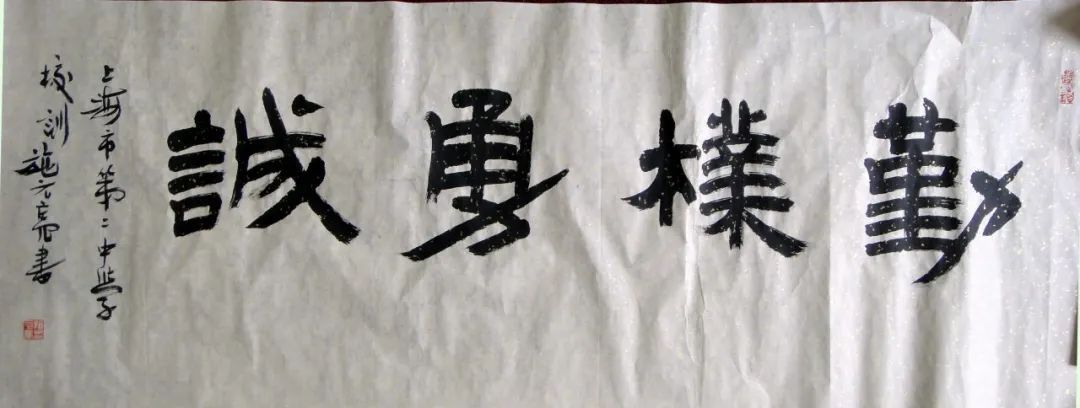 勤樸勇誠
上海市第二中學
校訓施元亮書